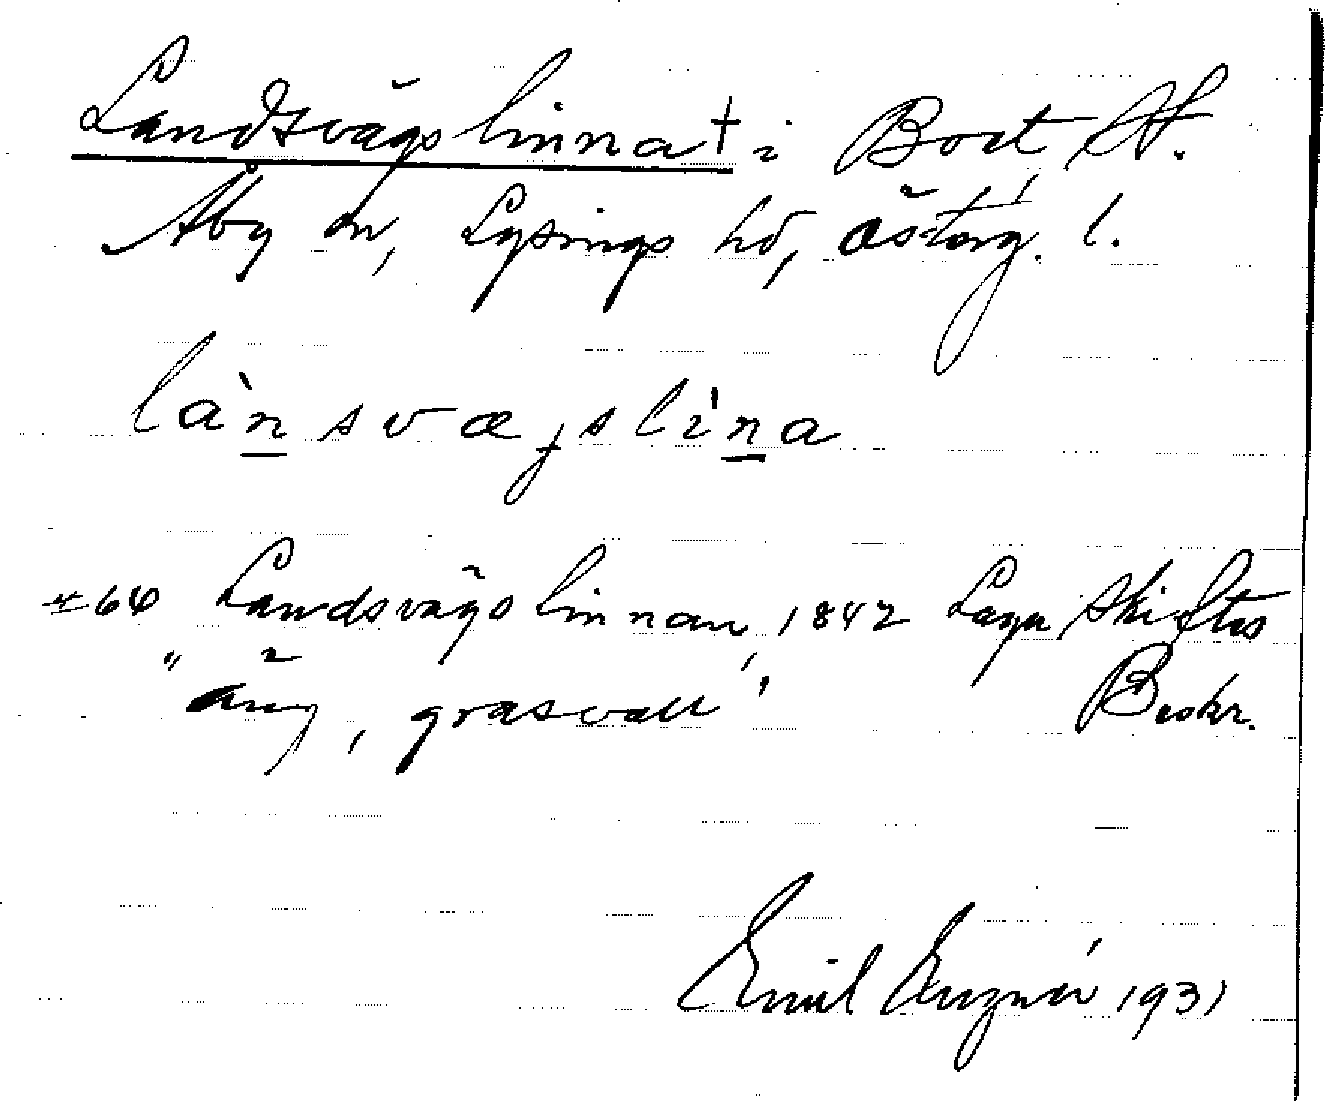 Landsvägslinna † i Bort, St.
Åby sn, Lysings hd, Östergl. l.
lànsvæjslìna
±64 Landsvägslinnan, 1842 Laga Skiftes
"äng, gräsvall" Beskr.
Emil 1931